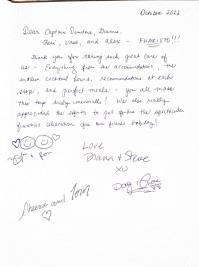 October 2022
Dear Captain Dimitris, Dramis,
Geri, Vaso, and Alex - EFHARISTO!!!
Thank you for taking such great care of
us - Everything from the accommodations, the
creative cocktail hours, recommendations at each
stop, and perfect meals - you all made
this trip truly memorable! We also really
appreciated the efforts to put together the spectacular
farewell celebration for our friends birthday!
Love
Diana + Steve
XO
Sheena and Tom